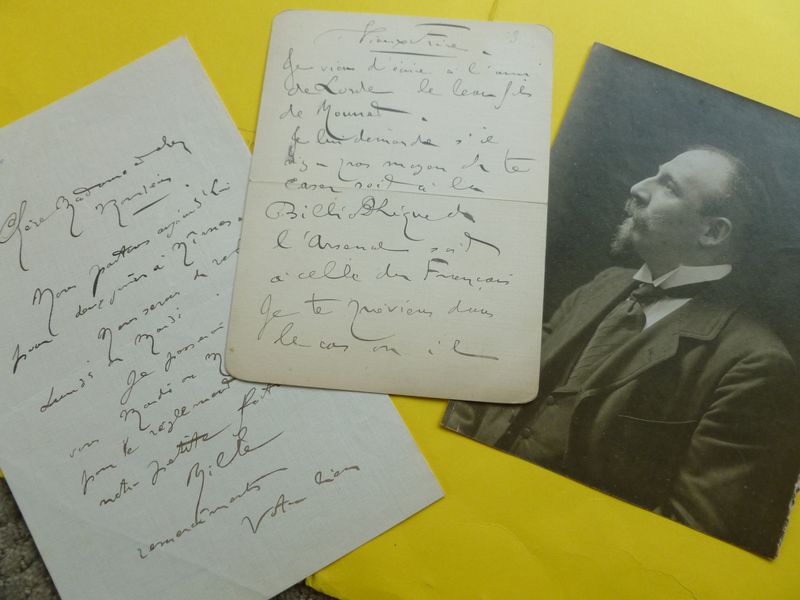 Chère Madame et cher
Monsieur
Nous partons aujourd'hui
pour à
Lundi ou Mardi.
Je passerai
vous Mardi ou M
pour le règlement
notre petite
Mille
remerciements
Votre
Vieux frère.
Je viens d'écrire à l'ami
de Lorde le beau fils
de Mounet.
Je lui demande s'il
n'y a pas moyen de te
caser soit à la
Bibliothèque de
l'Arsenal soit
à celle du Français
Je te préviens dans
le cas où il